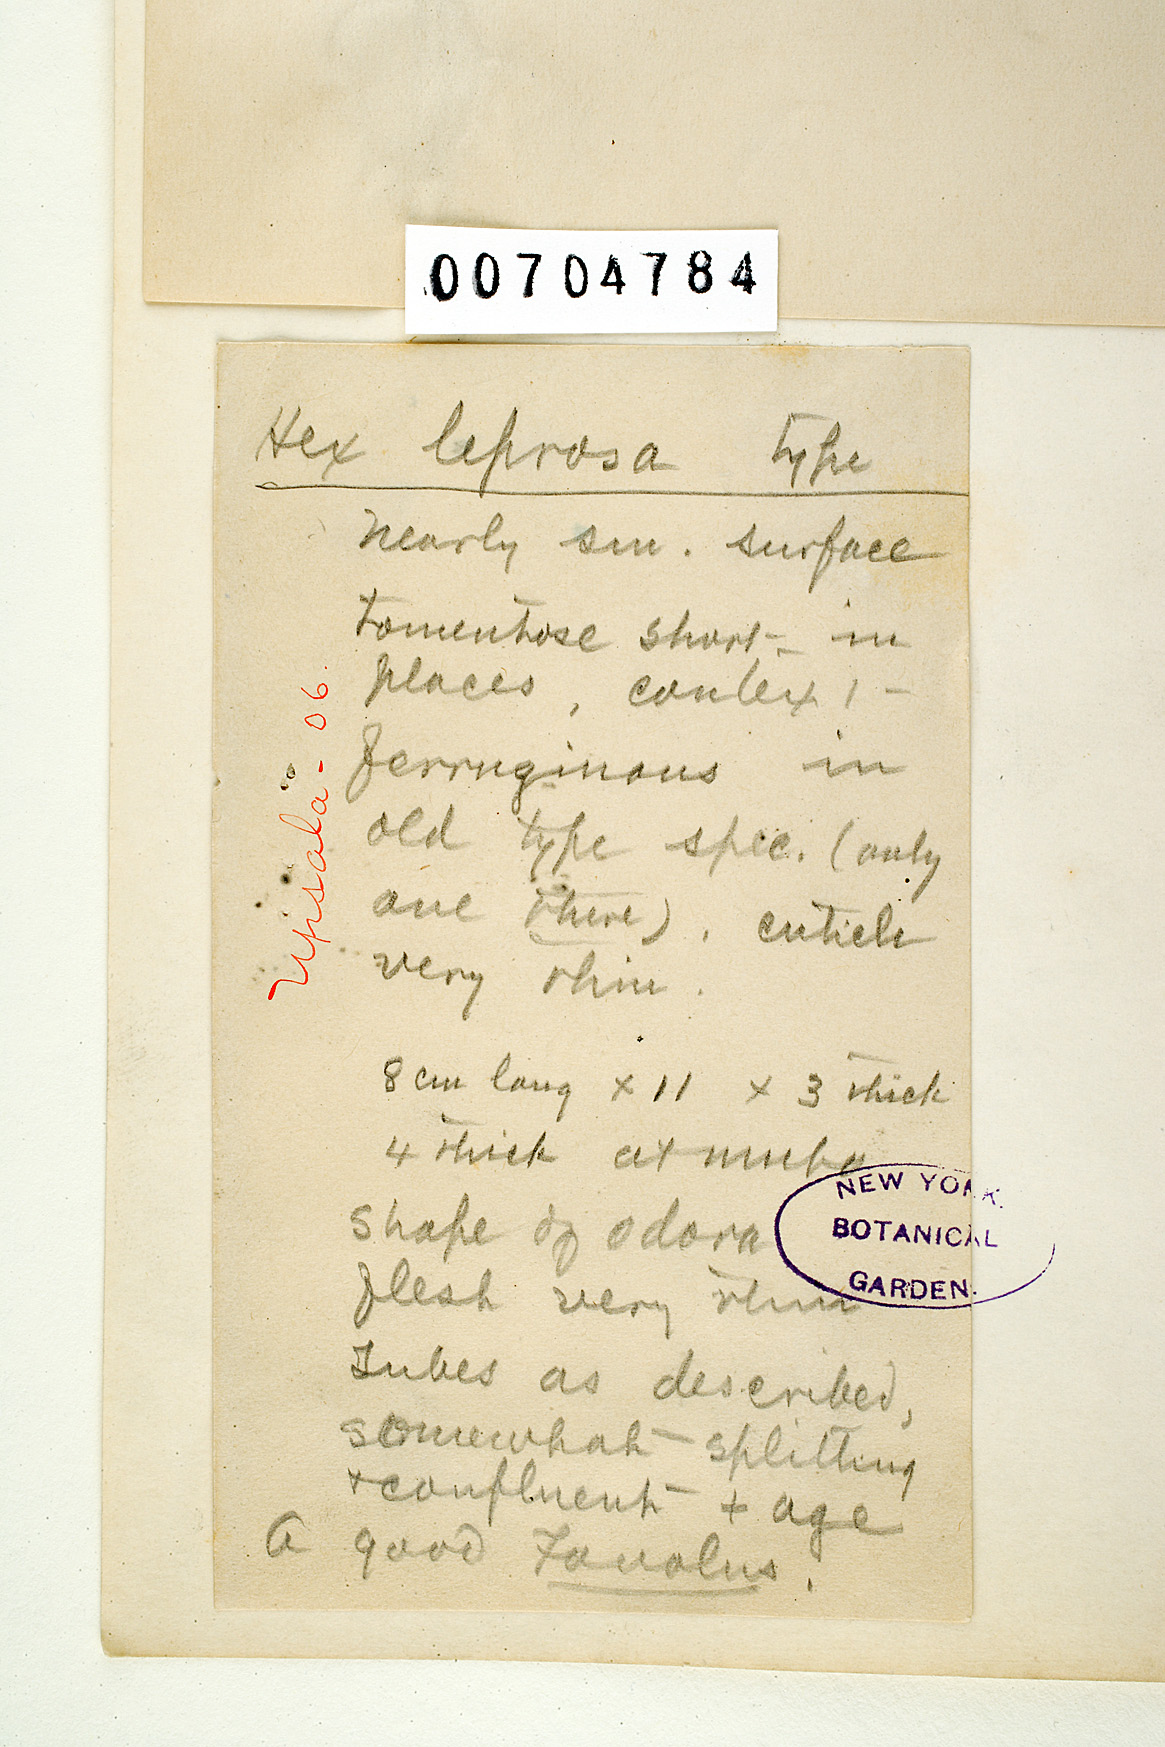 00704784
Hex leprosa type
Nearly sm. surface
tomentose short - in
places, context -
ferruginous in
old type spec. (only
one there), cuticle
very thin.
Upsala - 06.
8 cm long x 11 x 3 thick
4 thick at umbo
shape of odora
flesh very thin
Tubes as described,
somewhat splitting
+ confluent + age
A good Favolus.
NEW YORK
BOTANICAL
GARDEN.